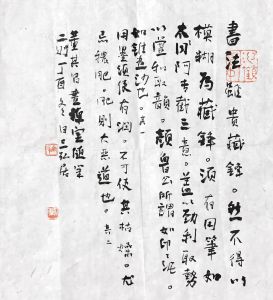 書法雖貴藏鋒。然不得以
模糊為藏鋒。須有用筆如
太阿剸截之意。蓋以勁利取勢
以虛和取韻。顏魯公所謂如印印泥。
如錐畫沙也。其一
用墨須使有潤。不可使其枯燥。尤
忌穠肥。肥則大惡道也。其二
董其昌畫禪室隨筆
丁酉冬日